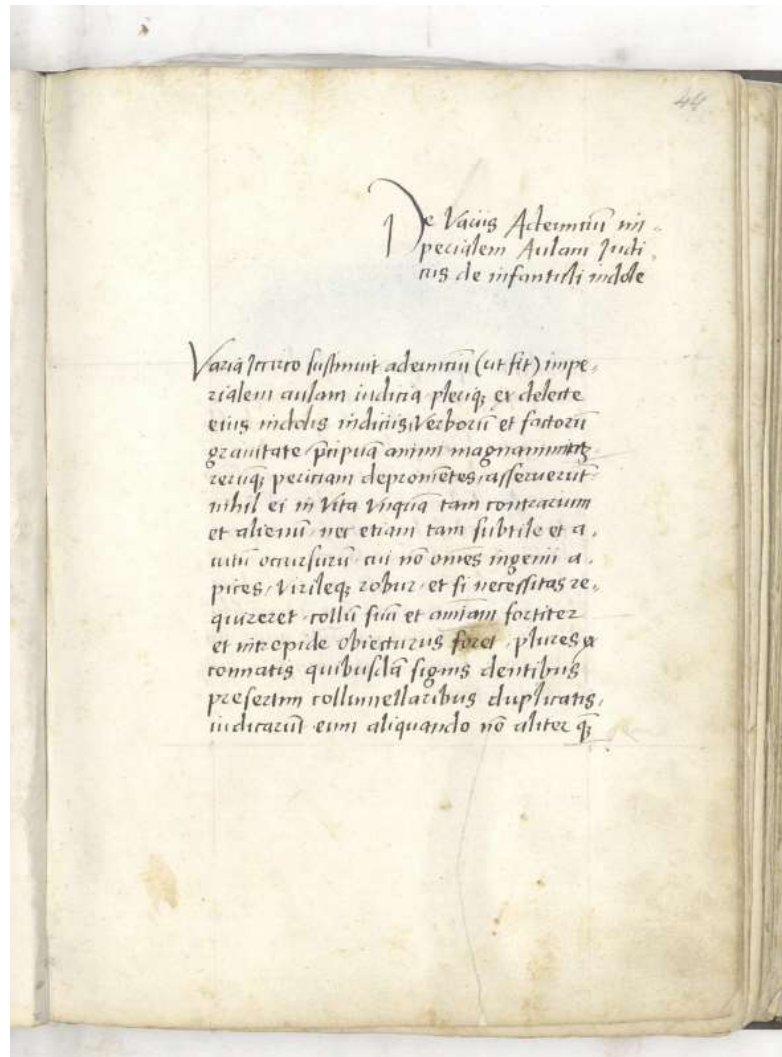 44
De Variis Adeuntiū im-
perialem Aulam Judi-
ciis de infantuli indole
Varia Iccirco sustinuit adeuntiū (ut fit) impe-
rialem aulam iudicia pleriq; ex delecte
eius indolis indiciis, Verborū et factorū
grauitate p̄cipuā animi magnanimitatē
rerūq; periciam depromētes, asseruerūt
nihil ei in Vita Vnquā tam contrarium
et alienū, nec etiam tam subtile et a-
cutū occursurū, cui nō om̄es ingenii a-
pices, Virileq; robur, et si necessitas re-
quireret, collū suū et animam fortiter
et intrepide obiecturus foret, plures ex
connatis quibusdā signis dentibus
presertim collumellaribus duplicatis,
iudicarūt eum aliquando nō aliter q̄